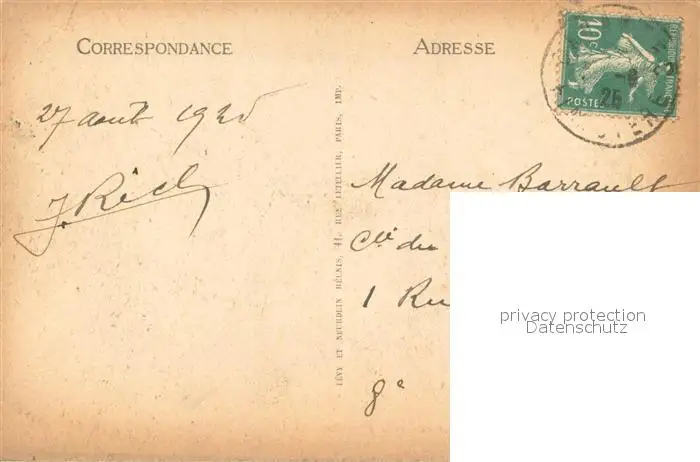 CORRESPONDANCE
ADRESSE
10c
POSTES
25
27 août 1925
Madame Barrault
Clé du
1 Ru
8e
LÉVY ET NEURDEIN RÉUNIS, 44, RUE LETELLIER, PARIS, IMP.
privacy protection
Datenschutz